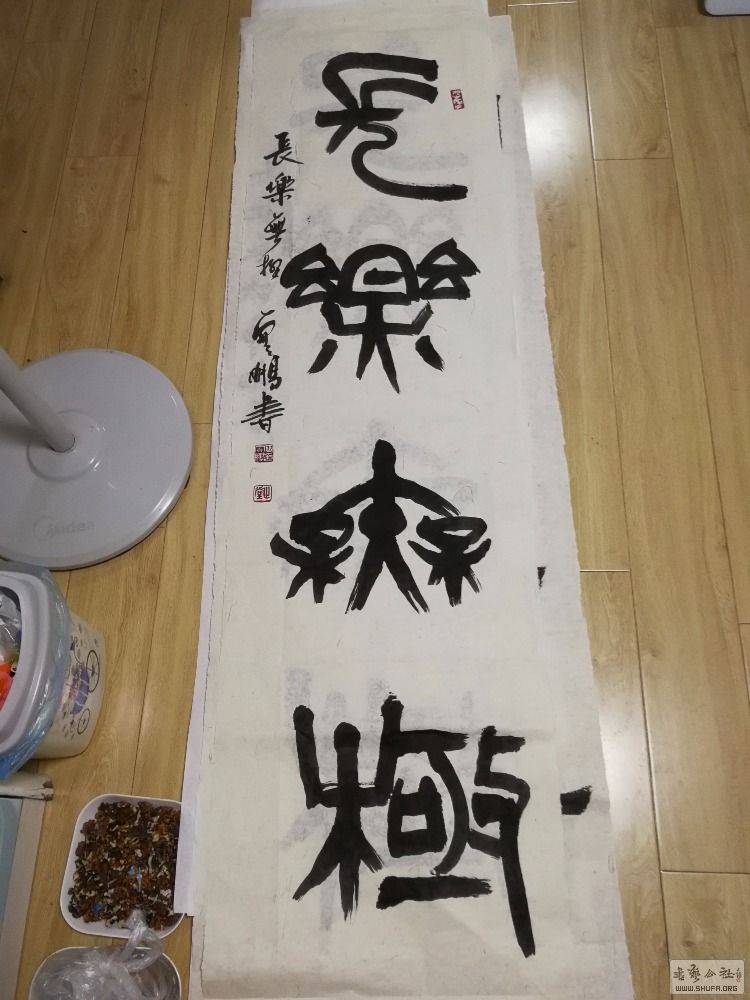 長樂無極
長樂無極 雲鵬書
Midea
书法公社
WWW.SHUFA.ORG